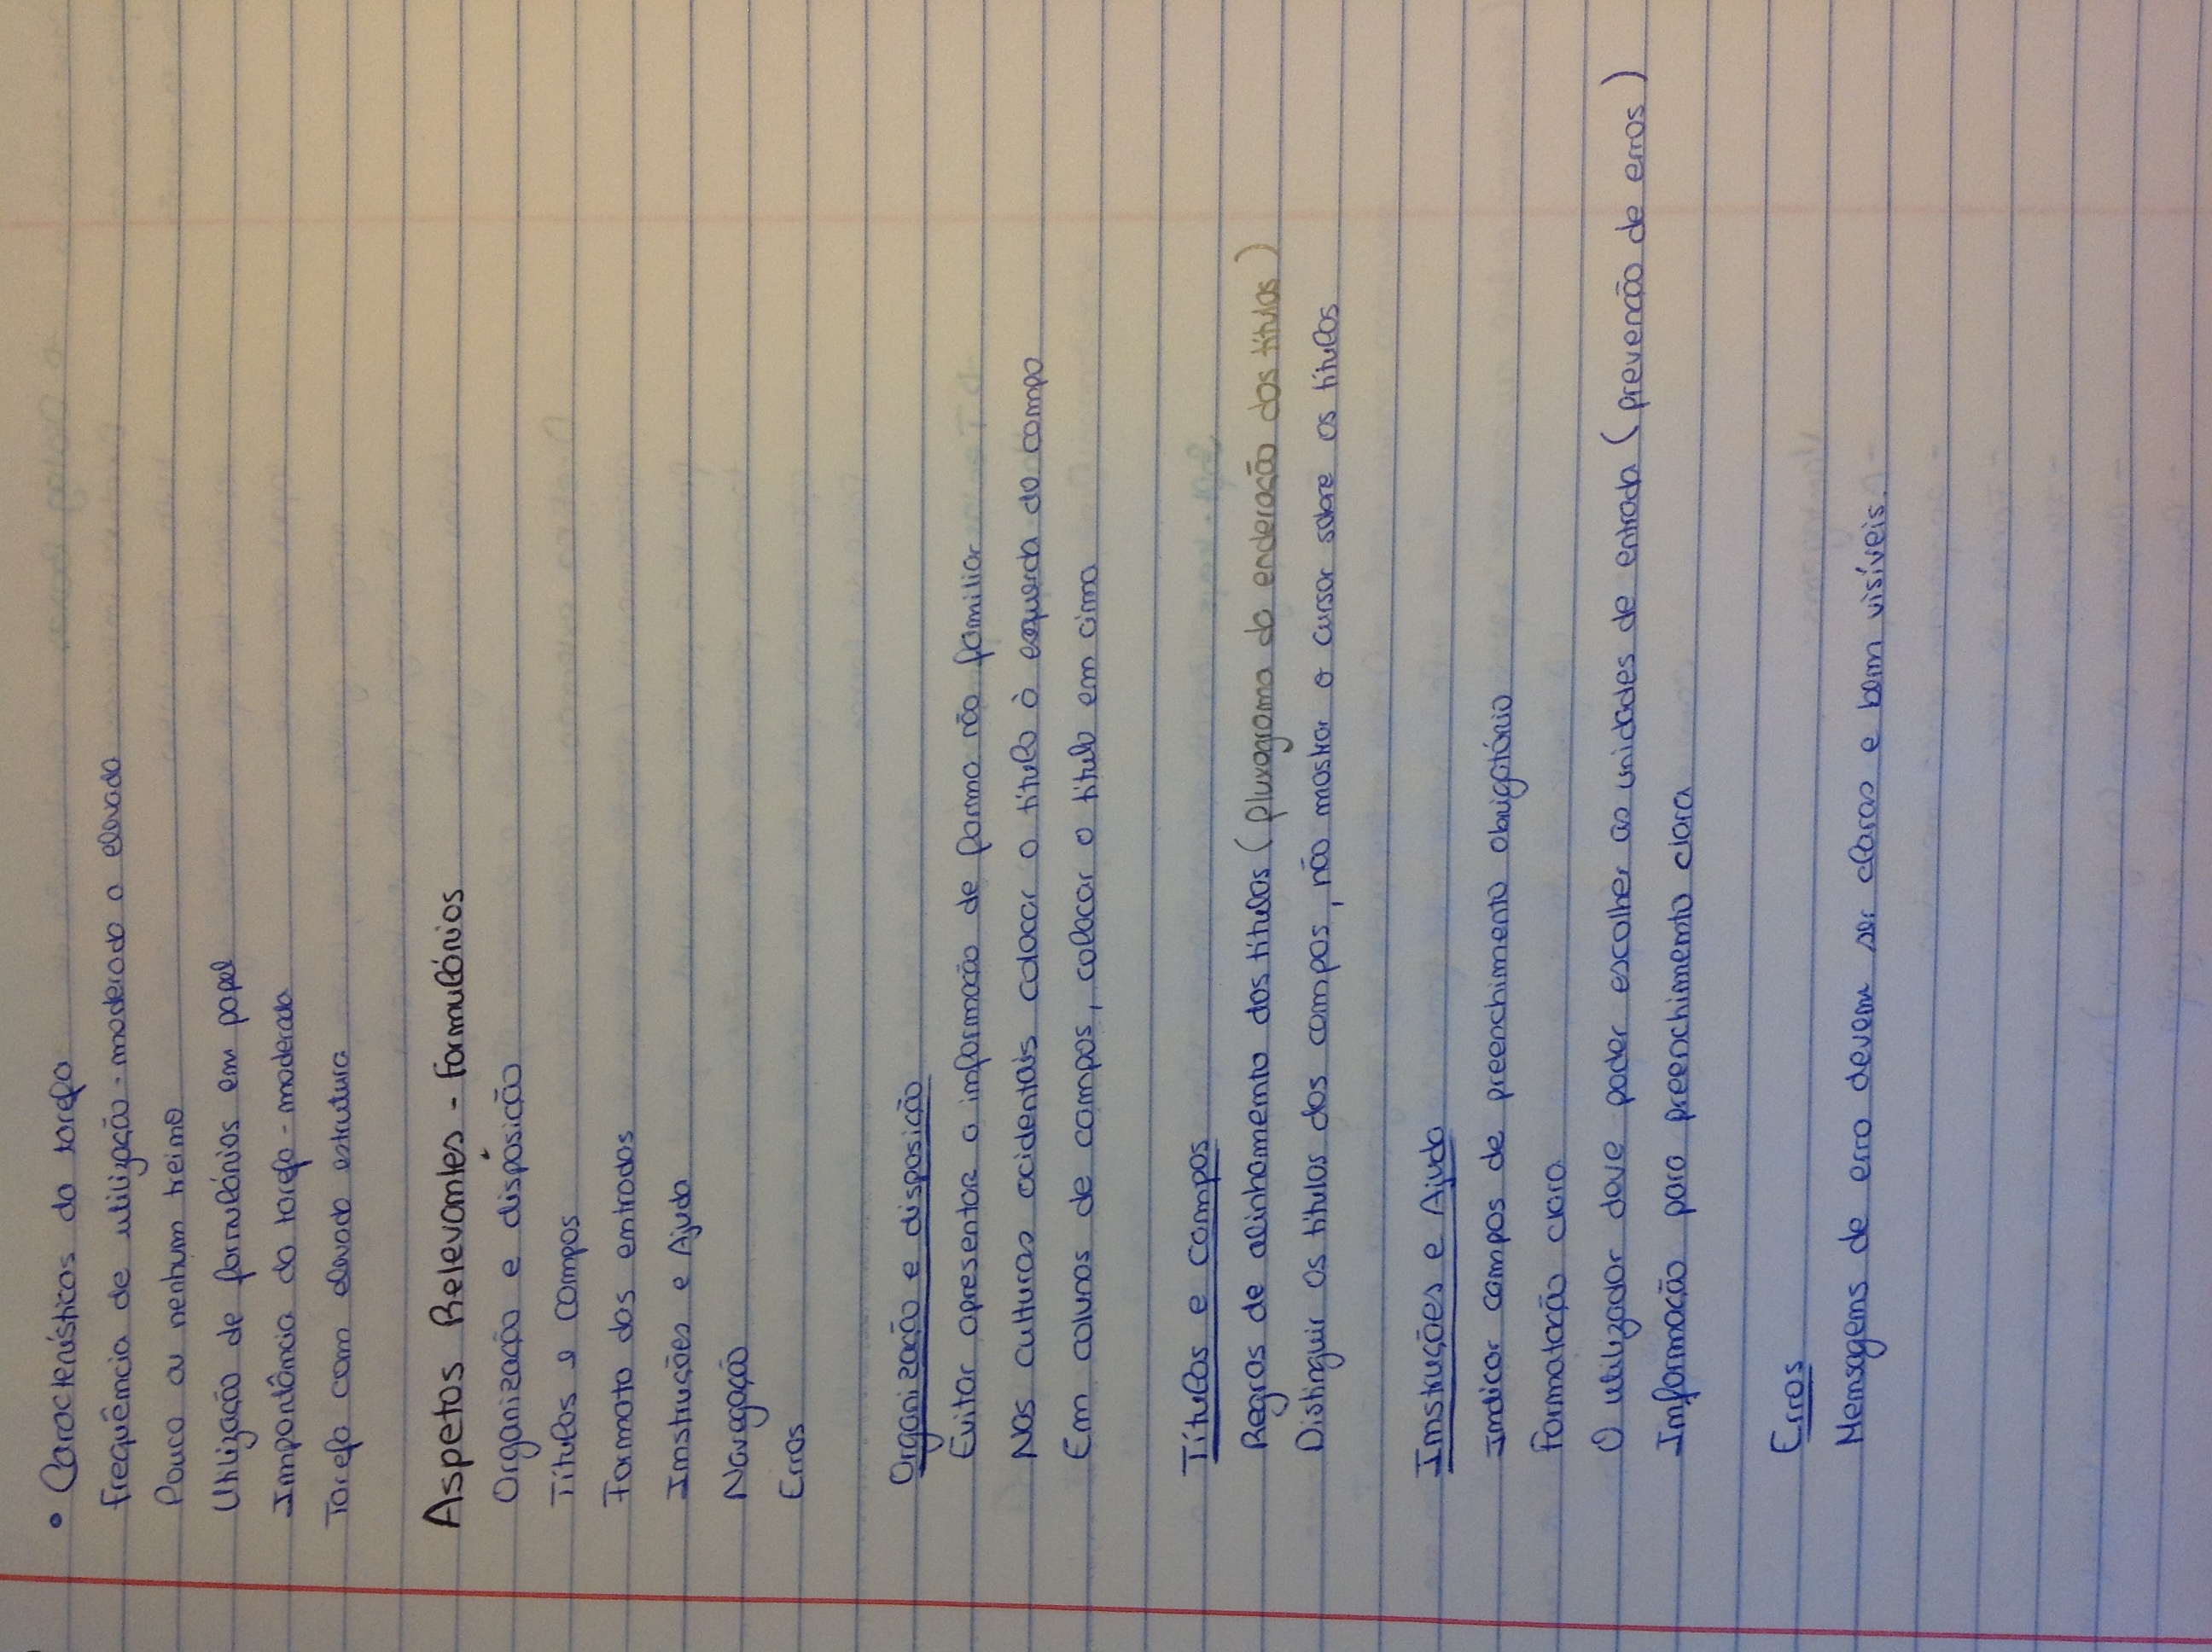 • Características da tarefa
Frequência de utilização - moderada a elevada
Pouco ou nenhum treino
Utilização de formulários em papel
Importância da tarefa - moderada
Tarefa com elevada estrutura
Aspetos Relevantes - Formulários
Organização e disposição
Títulos e campos
Formato das entradas
Instruções e Ajuda
Navegação
Erros
Organização e disposição
Evitar apresentar a informação de forma não familiar
Nas culturas ocidentais colocar o título à esquerda do campo
Em colunas de campos, colocar o título em cima
Títulos e campos
Regras de alinhamento dos títulos (fluxograma da enderação dos títulos)
Distinguir os títulos dos campos, não mostrar o cursor sobre os títulos
Instruções e Ajuda
Indicar campos de preenchimento obrigatório
Formatação clara
O utilizador deve poder escolher as unidades de entrada (prevenção de erros)
Informação para preenchimento clara
Erros
Mensagens de erro devem ser claras e bem visíveis.